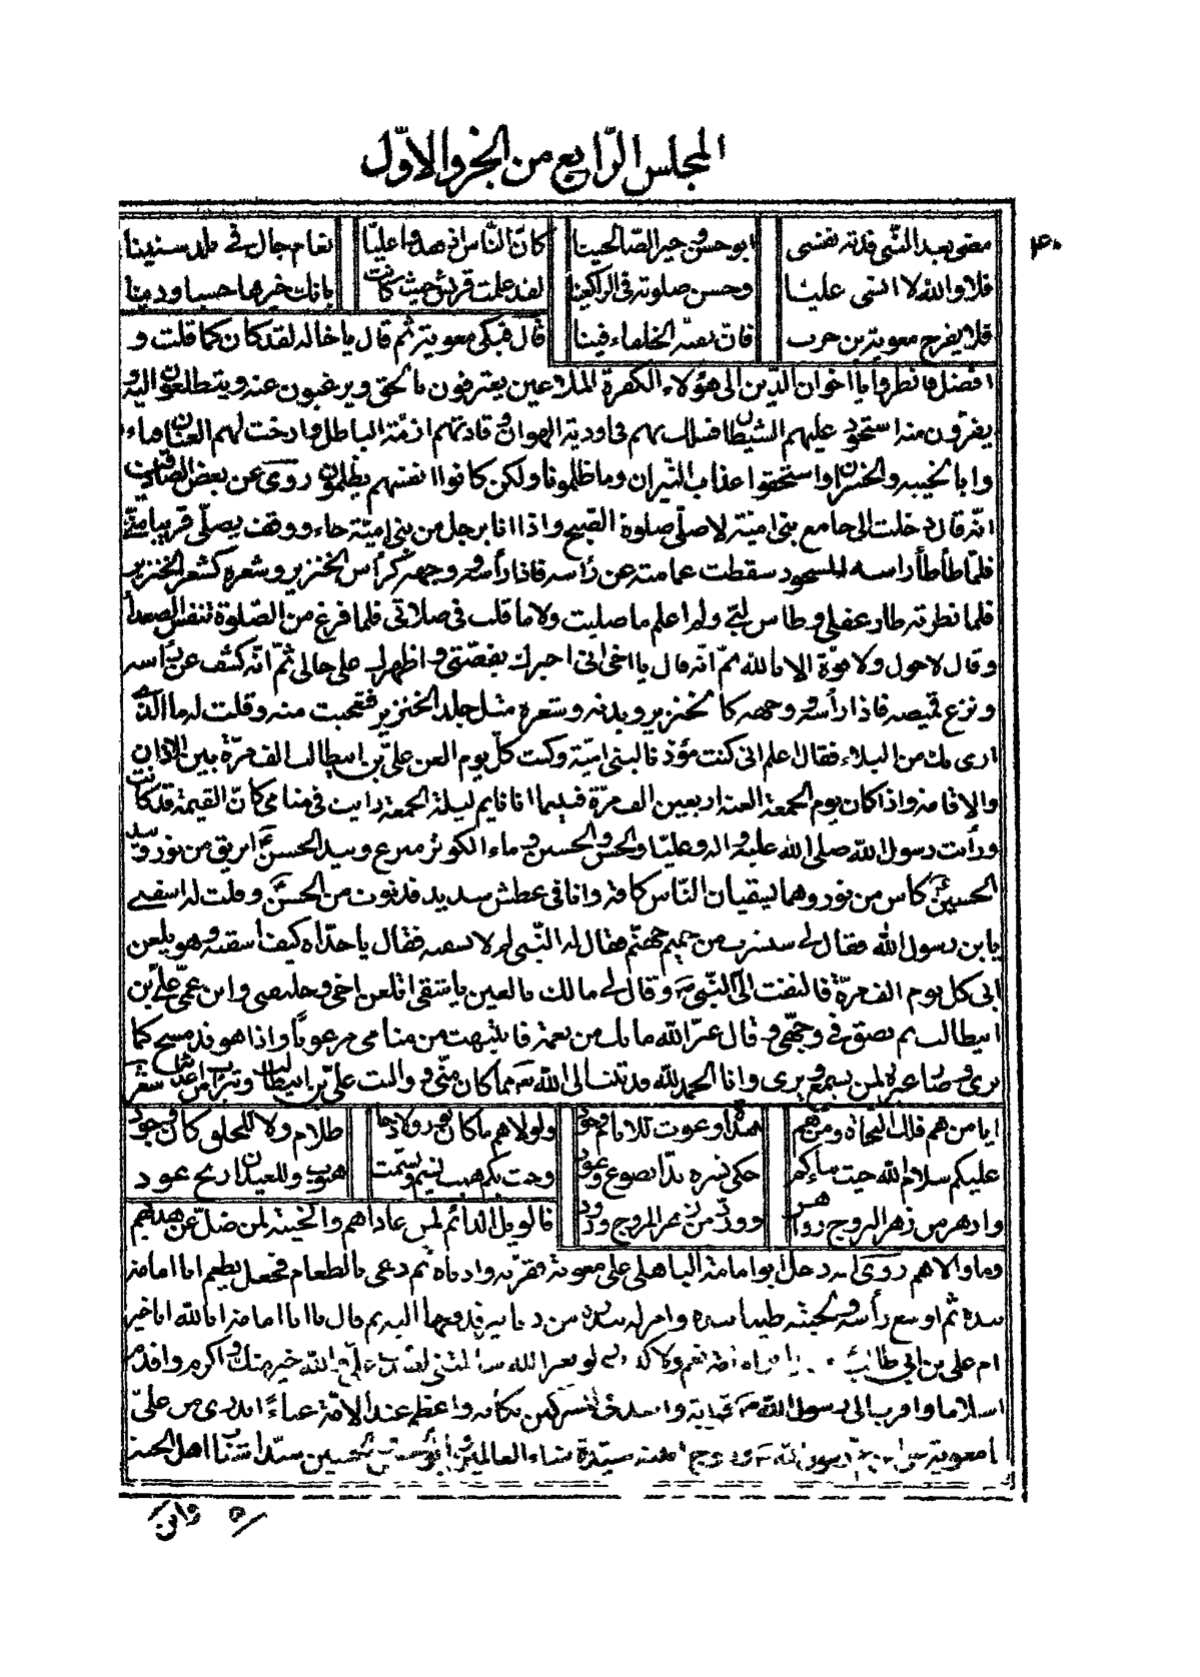 المجلس الرّابع من الجزو الاوّل
٣٠
مضى بعد النّبى فدته نفسى ابو حسن و خير الصّالحينا كانّ النّاس اذ فقدوا عليّا نعام جال فى بلد سنينا
فلا والله لا انسى عليّا وحسن صلوته فى الراكعينا لقد علمت قريش حيث كانت بانك خيرها حسبا ودينا
فلا يفرح معوية بن حرب فانّ بقيّة الخلفاء فينا قال فبكى معوية ثم قال يا خالد لقد كان كما قلت و
افضل فانظروا يا اخوان الدّين الى هؤلاء الكفرة الملاعين يعترفون بالحق ويرغبون عنه ويتطلعون اليه و
يفرّون منه استحوذ عليهم الشيطان فسلك بهم فى اودية الهوان و قادتهم ازمّة الباطل وارخت لهم العنان فباء
وا بالخيبه والخسران واستحقوا عذاب النّيران وما ظلمونا ولكن كانوا انفسهم يظلمون روى عن بعض الصّادقين
انّه قال دخلت الى جامع بنى اميّة لاصلّى صلوة الصّبح واذا انا برجل من بنى اميّة جاء ووقف يصلّى قريبا منّى
فلمّا طأطأ راسه للسجود سقطت عمامته عن رأسه فاذا رأسه و وجهه كرأس الخنزير وشعره كشعر الخنزير
فلما نظرته طار عقلى وطاش لبّى ولم اعلم ما صليت ولا ما قلت فى صلاتى فلما فرغ من الصّلوة تنفس الصعدا
وقال لا حول ولا قوّة الا بالله ثمّ انّه قال يا اخى انى اخبرك بقصّتى واظهرك على حالى ثمّ انّه كشف عن رأسه
ونزع قميصه فاذا رأسه و وجهه كالخنزير وبدنه وشعره مثل جلد الخنزير فتعجبت منه وقلت له ما الّذى
ارى بك من البلاء فقال اعلم انى كنت مؤذنا لبنى اميّة وكنت كلّ يوم العن علىّ بن ابيطالب الف مرّة بين الاذان
والاقامة واذا كان يوم الجمعة العنه اربعين الف مرّة فبينما انا نايم ليلة الجمعة رايت فى منامى كانّ القيمة قد كانت
ورأيت رسول الله صلى الله عليه و اله وعليّا والحسن والحسين و ماء الكوثر مترع وبيد الحسن ابريق من نور وبيد
الحسين كاس من نور وهما يسقيان النّاس كافة وانا فى عطش شديد فدنوت من الحسن وقلت له اسقنى
يابن رسول الله فقال لى ستشرب من حميم جهنّم فقال له النّبى لم لا تسقه فقال يا جدّاه كيف اسقيه وهو يلعن
ابى كل يوم الف مرّة فالتفت الىّ النّبى ص وقال لى مالك يا لعين يا شقى اتلعن اخى وخليفتى وابن عمّى علىّ بن
ابيطالب ثم بصق فى وجهى و قال غيّر الله ما بك من نعمة فانتبهت من منامى مرعوبا واذا هو قد مسخ كما
ترى و صار عبرة لمن يسمع ويرى وانا الحمد لله قد تبت الى الله مما كان منّى و واليت علىّ بن ابيطالب وتبرّأت من اعدائه شعر
ايا من هم فلك النجاة ومن هم هداة وغوث للانام وجود ولولاهم ما كان نور ولا دجا ظلام ولا للخلق كان وجود
عليكم سلام الله حيث
وازهر من زهر المروج وورّد من زهر المروج ورود فالويل الدائم لمن عاداهم والخيبة لمن ضلّ عن هديهم
وما والاهم روى انه دخل ابو امامة الباهلى على معوية فقرّبه وادناه ثم دعى بالطعام فجعل يطعم ابا امامة
بيده ثم اوسع رأسه ولحيته طيبا بيده وامر له ببدرة من دنانير فدفعها اليه ثم قال يا ابا امامة انا بالله انا خير
ام على بن ابى طالب فقال ابو امامة نعم ولا كذب ولو بغير الله سألتنى لصدقت علىّ و الله خير منك و اكرم واقدم
اسلاما واقرب الى رسول الله ص قرابة واشدّ فى المشركين نكاية واعظم عند الامّة غناء اتدرى من علىّ
يا معوية ابن عمّ رسول الله ص وزوج ابنته سيّدة نساء العالمين و ابو الحسن والحسين سيّدا شباب اهل الجنة
وابن